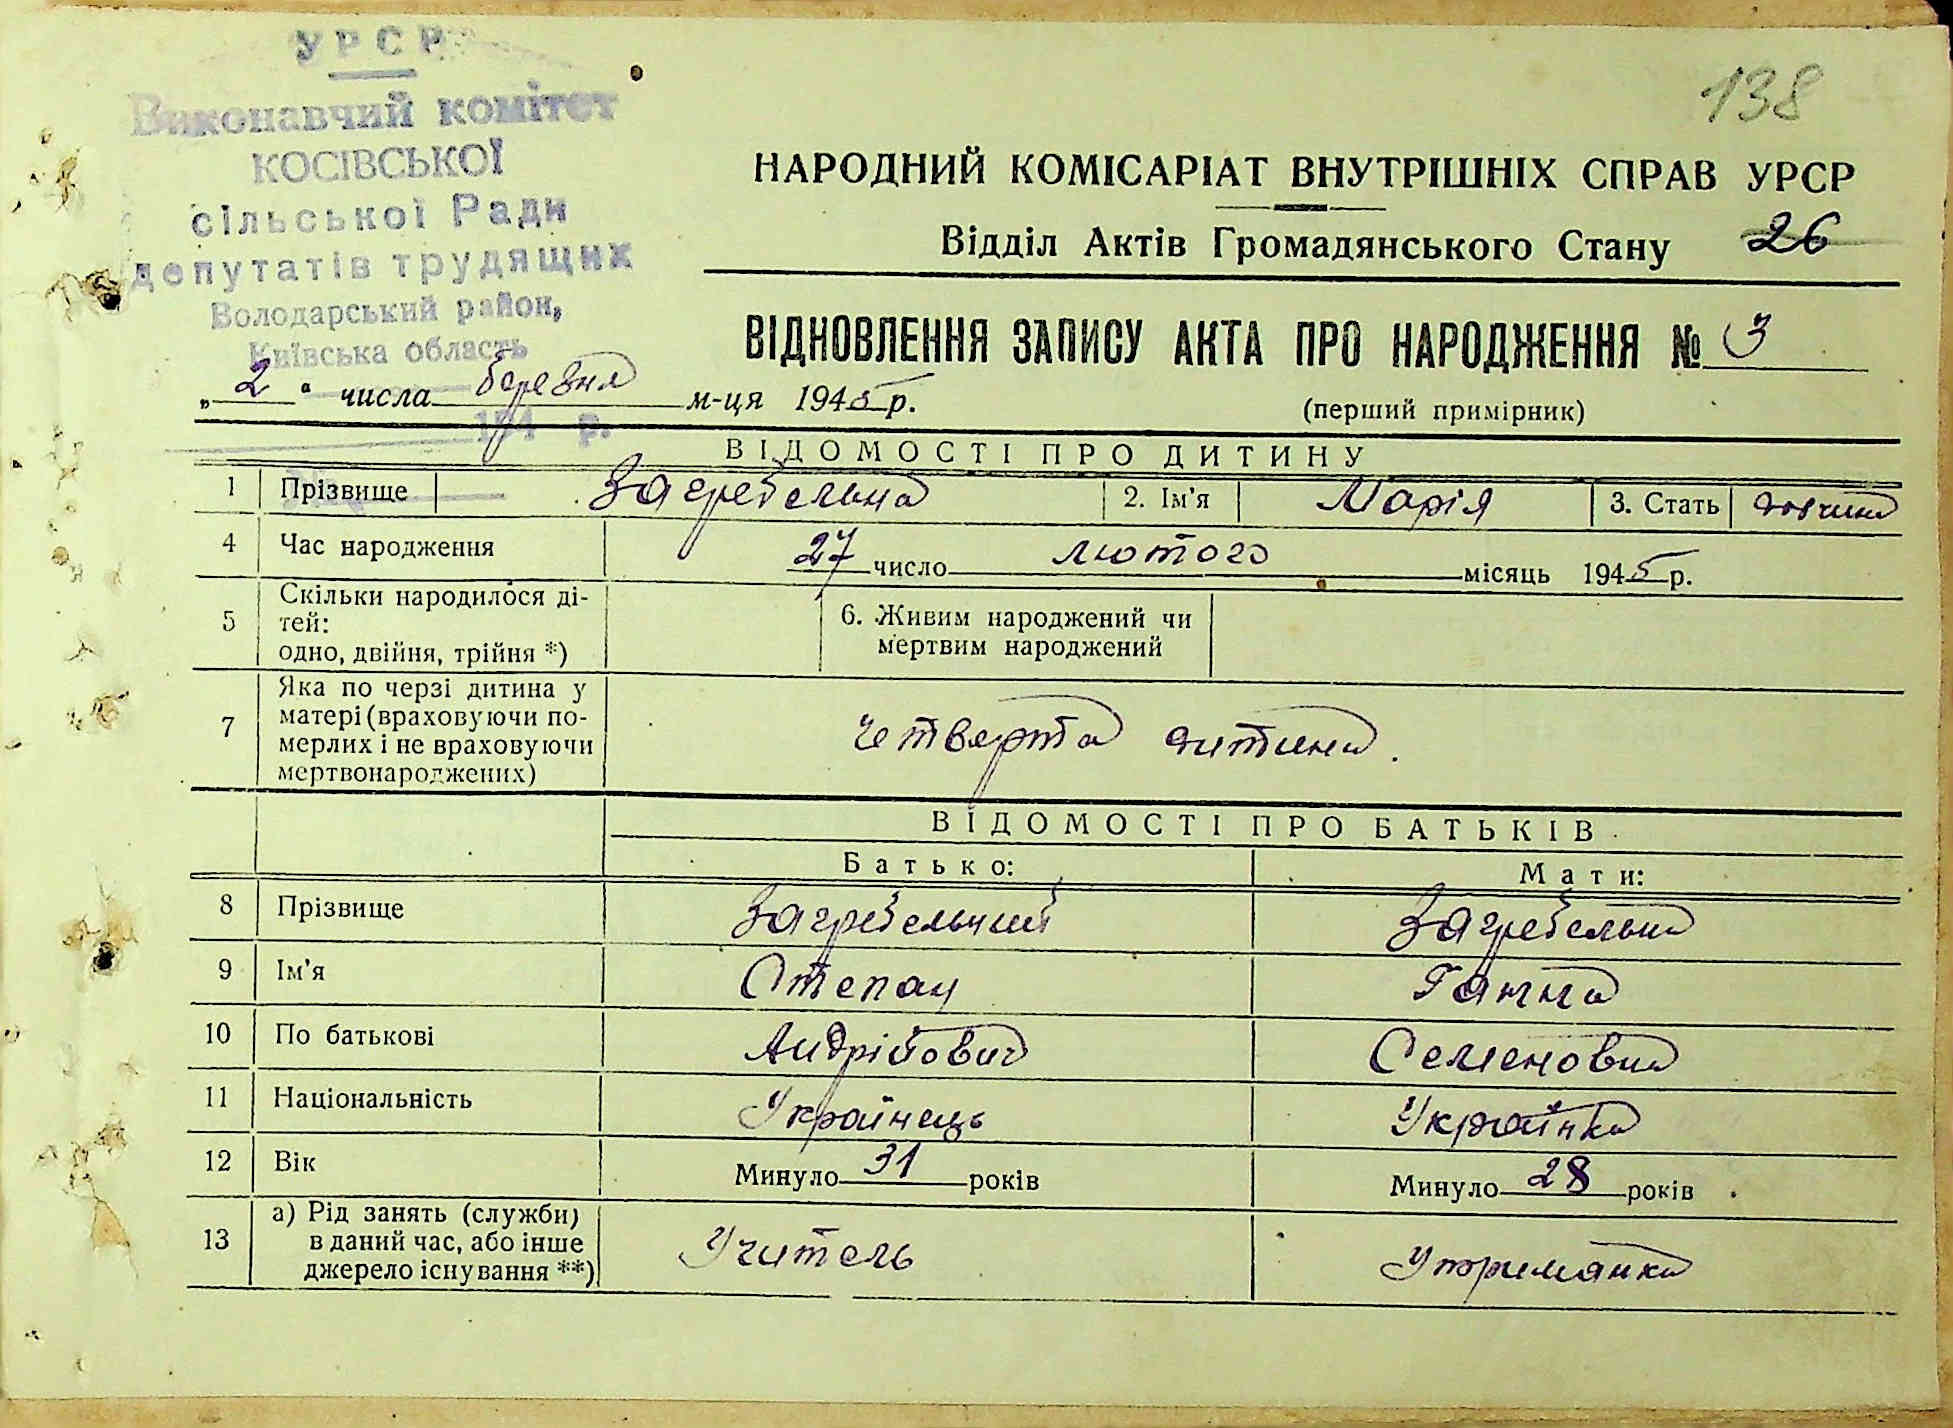 УРСР
Виконавчий комітет
КОСІВСЬКОЇ
сільської Ради
депутатів трудящих
Володарський район,
Київська область
194 р.
138
НАРОДНИЙ КОМІСАРІАТ ВНУТРІШНІХ СПРАВ УРСР
Відділ Актів Громадянського Стану 26
ВІДНОВЛЕННЯ ЗАПИСУ АКТА ПРО НАРОДЖЕННЯ № 3
„ 2 “ числа березня м-ця 1945 р.
(перший примірник)
ВІДОМОСТІ ПРО ДИТИНУ
1 Прізвище Загребельна 2. Ім'я Марія 3. Стать дівчина
4 Час народження 27 число лютого місяць 1945 р.
5 Скільки народилося ді-
тей:
одно, двійня, трійня *)
6. Живим народжений чи
мертвим народжений
7 Яка по черзі дитина у
матері (враховуючи по-
мерлих і не враховуючи
мертвонароджених)
четверта дитина.
ВІДОМОСТІ ПРО БАТЬКІВ
Батько: Мати:
8 Прізвище Загребельний Загребельна
9 Ім'я Степан Ганна
10 По батькові Андрійович Семеновна
11 Національність Українець Українка
12 Вік Минуло 31 років Минуло 28 років
13 а) Рід занять (служби)
в даний час, або інше
джерело існування **)
Учитель Утриманка